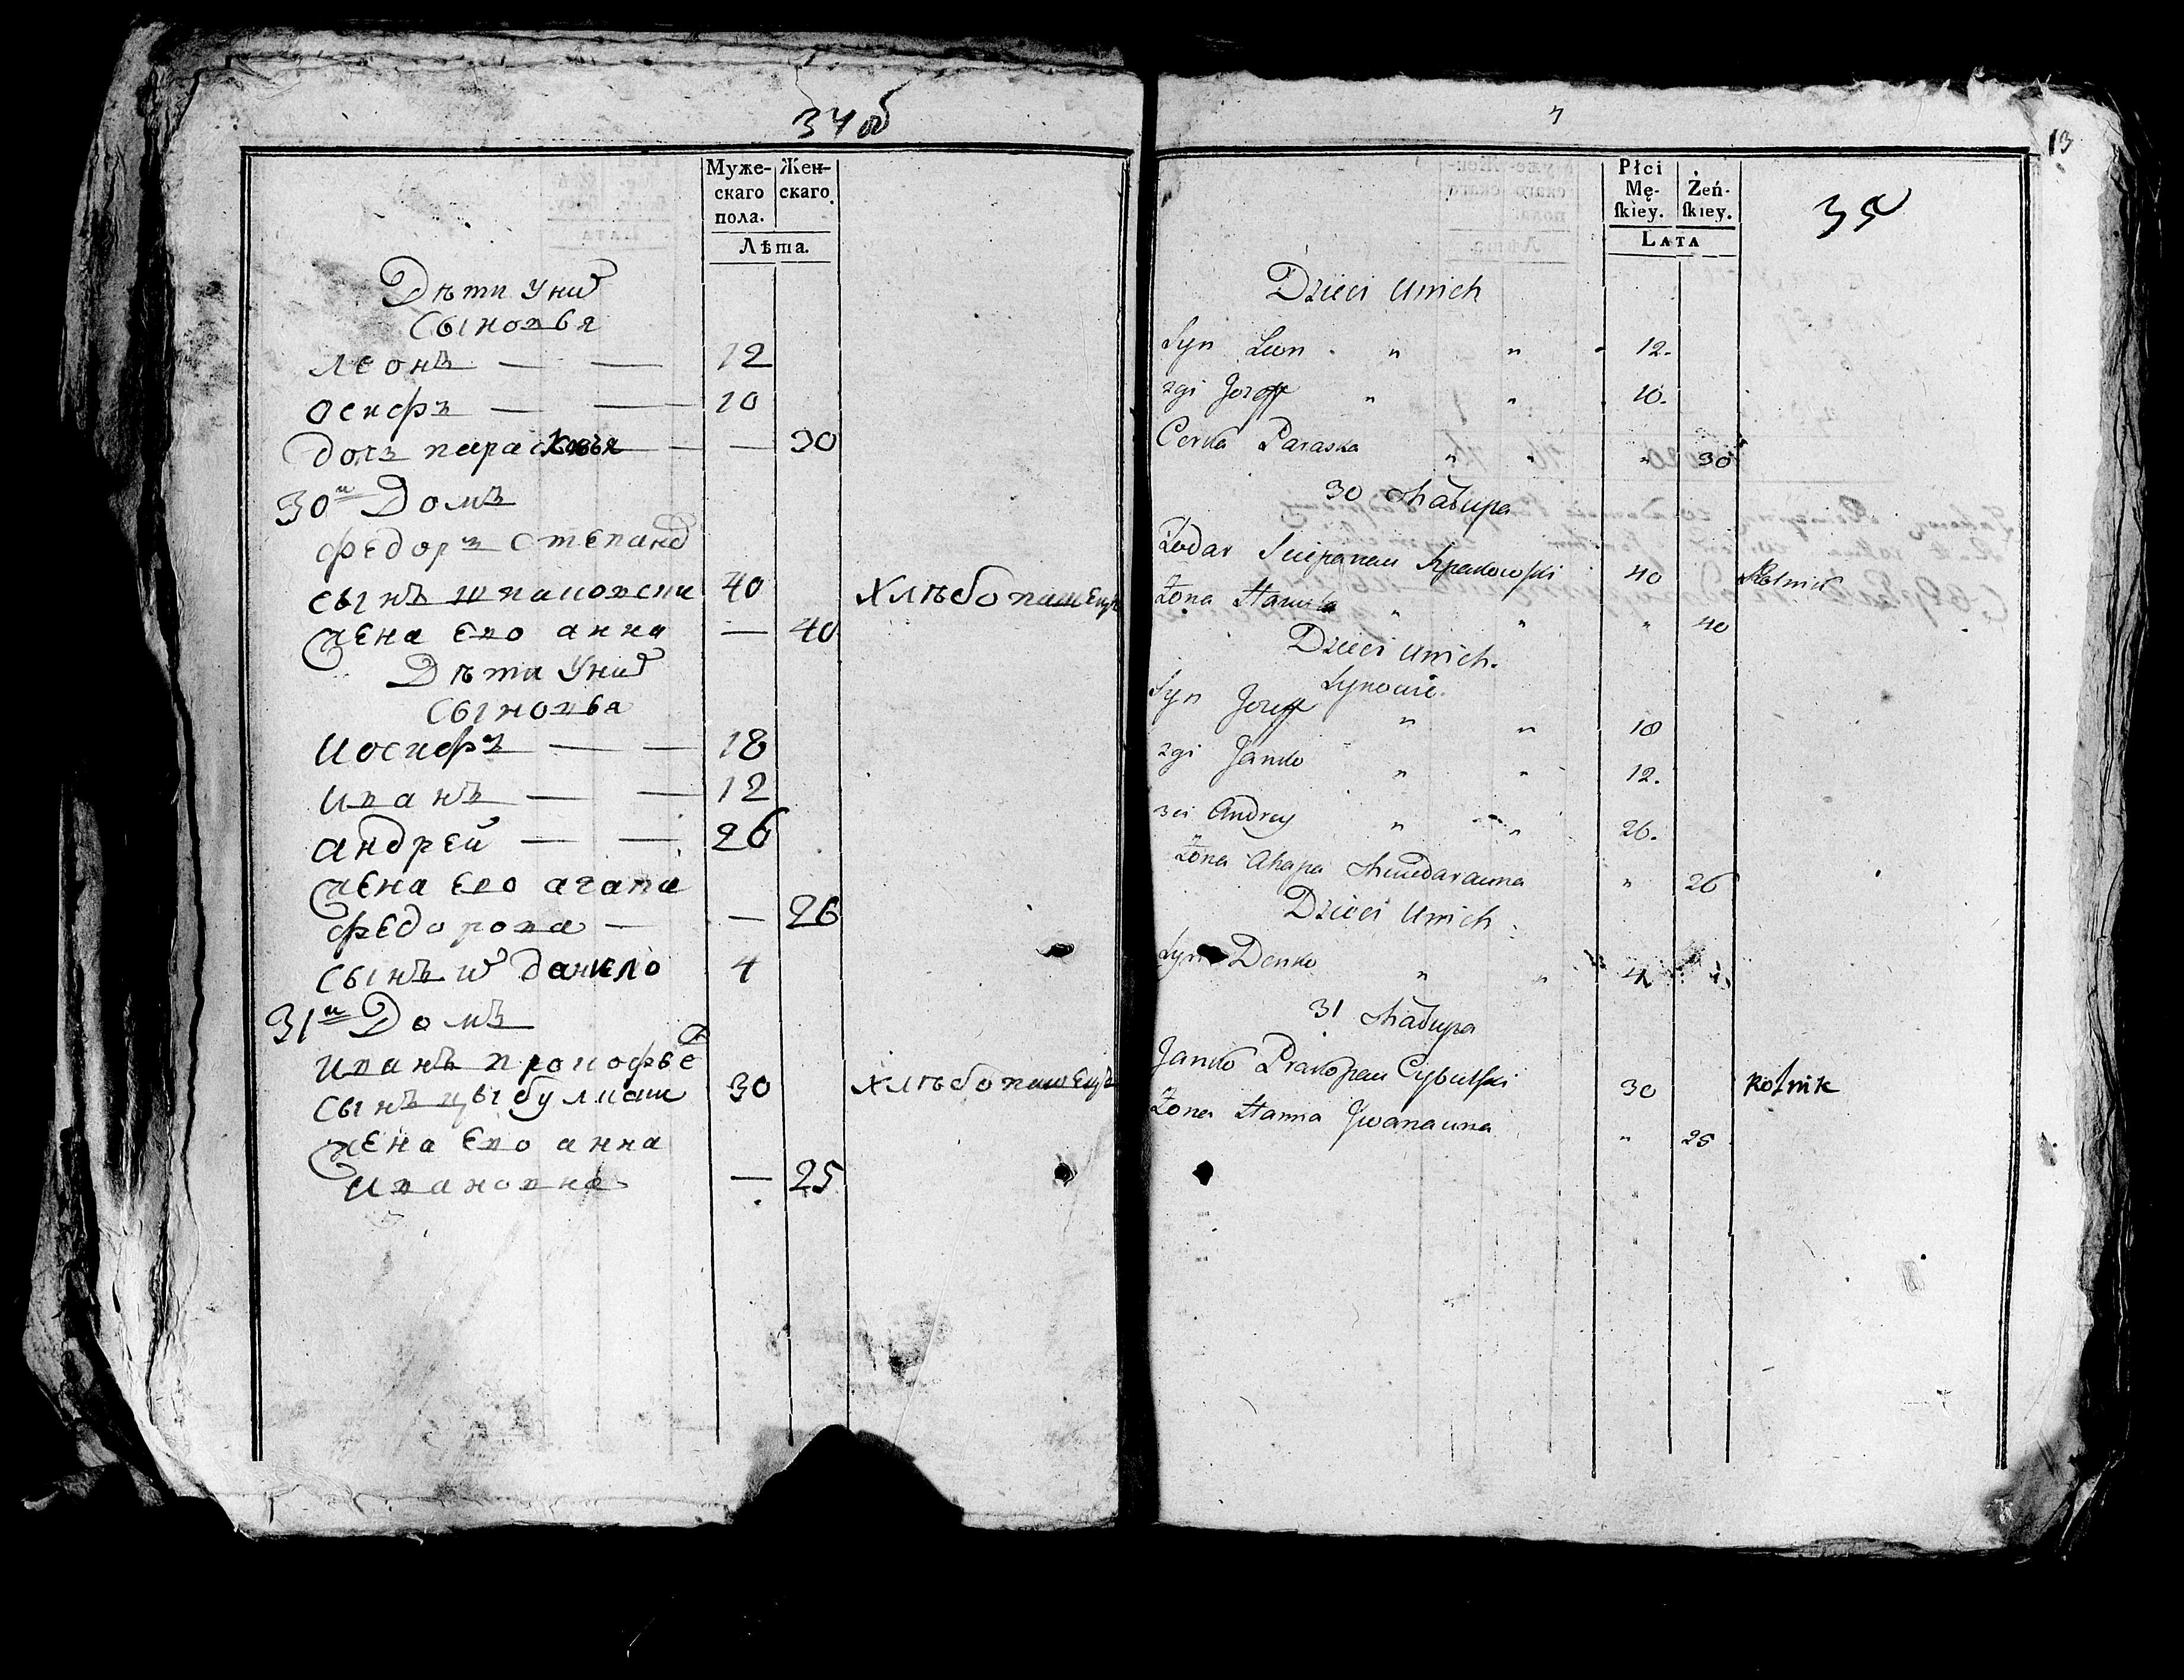 34об
Муже-
скаго
пола.
Жен-
скаго.
Лѣта.
Дѣти у них
Сыновья
леонъ — — 12
осифъ — — 10
дочь парасковья — — 30
30й Домъ
федоръ степанов
сынъ 40 Хлѣбопашецъ
жена Его анна — 40
Дѣти у них
Сыновья
Иосифъ — — 18
Иванъ — — 12
андрей — — 26
жена Его агапа
федорова — — 26
сынъ данило 4
31й Домъ
Иванъ прокофьев
сынъ 30 Хлѣбопашецъ
жена Его анна
Ивановна — 25
13
35
Płci
Mę-
ſkiey.
Żeń-
ſkiey.
LATA
Dzieci Unich
Syn Leon " " 12.
2gi Jozeff " " 10.
Corka Paraska " " " 30
30 Chałupa
Sciepanau 40 Rolnik
Zona Hanna " " " 40
Dzieci Unich.
Synowie.
Syn Jozeff " " 18
2gi Janko " " 12.
3ci Andrey " " 26.
Zona Ahapa " 26
Dzieci Unich
Syn Denko " " 4
31 Chałupa
Janko Prakopau Cybulſki 30 Rolnik
Zona Hanna Jwanauna " 25